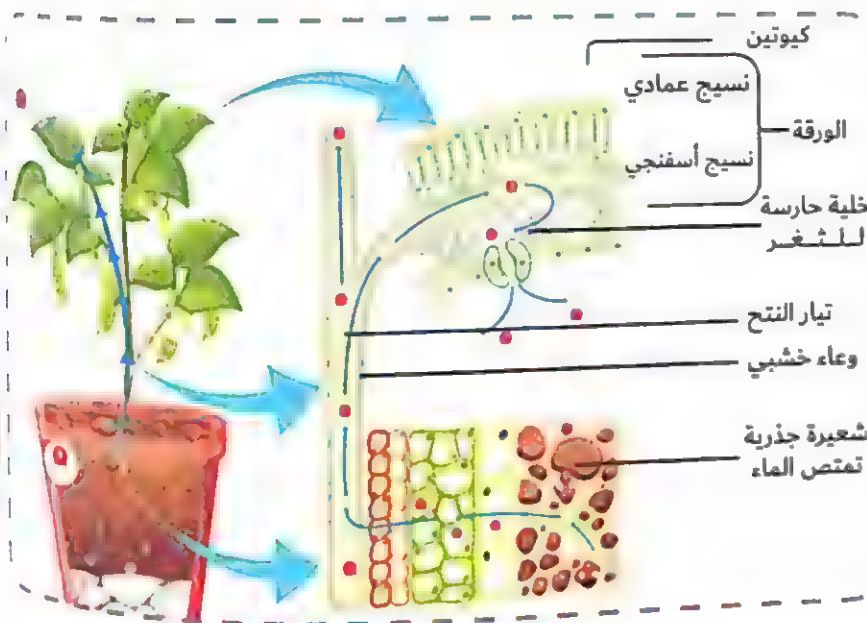 كيوتين
نسيج عمادي
الورقة
نسيج أسفنجي
خلية حارسة
للثغر
تيار النتح
وعاء خشبي
شعيرة جذرية
تمتص الماء